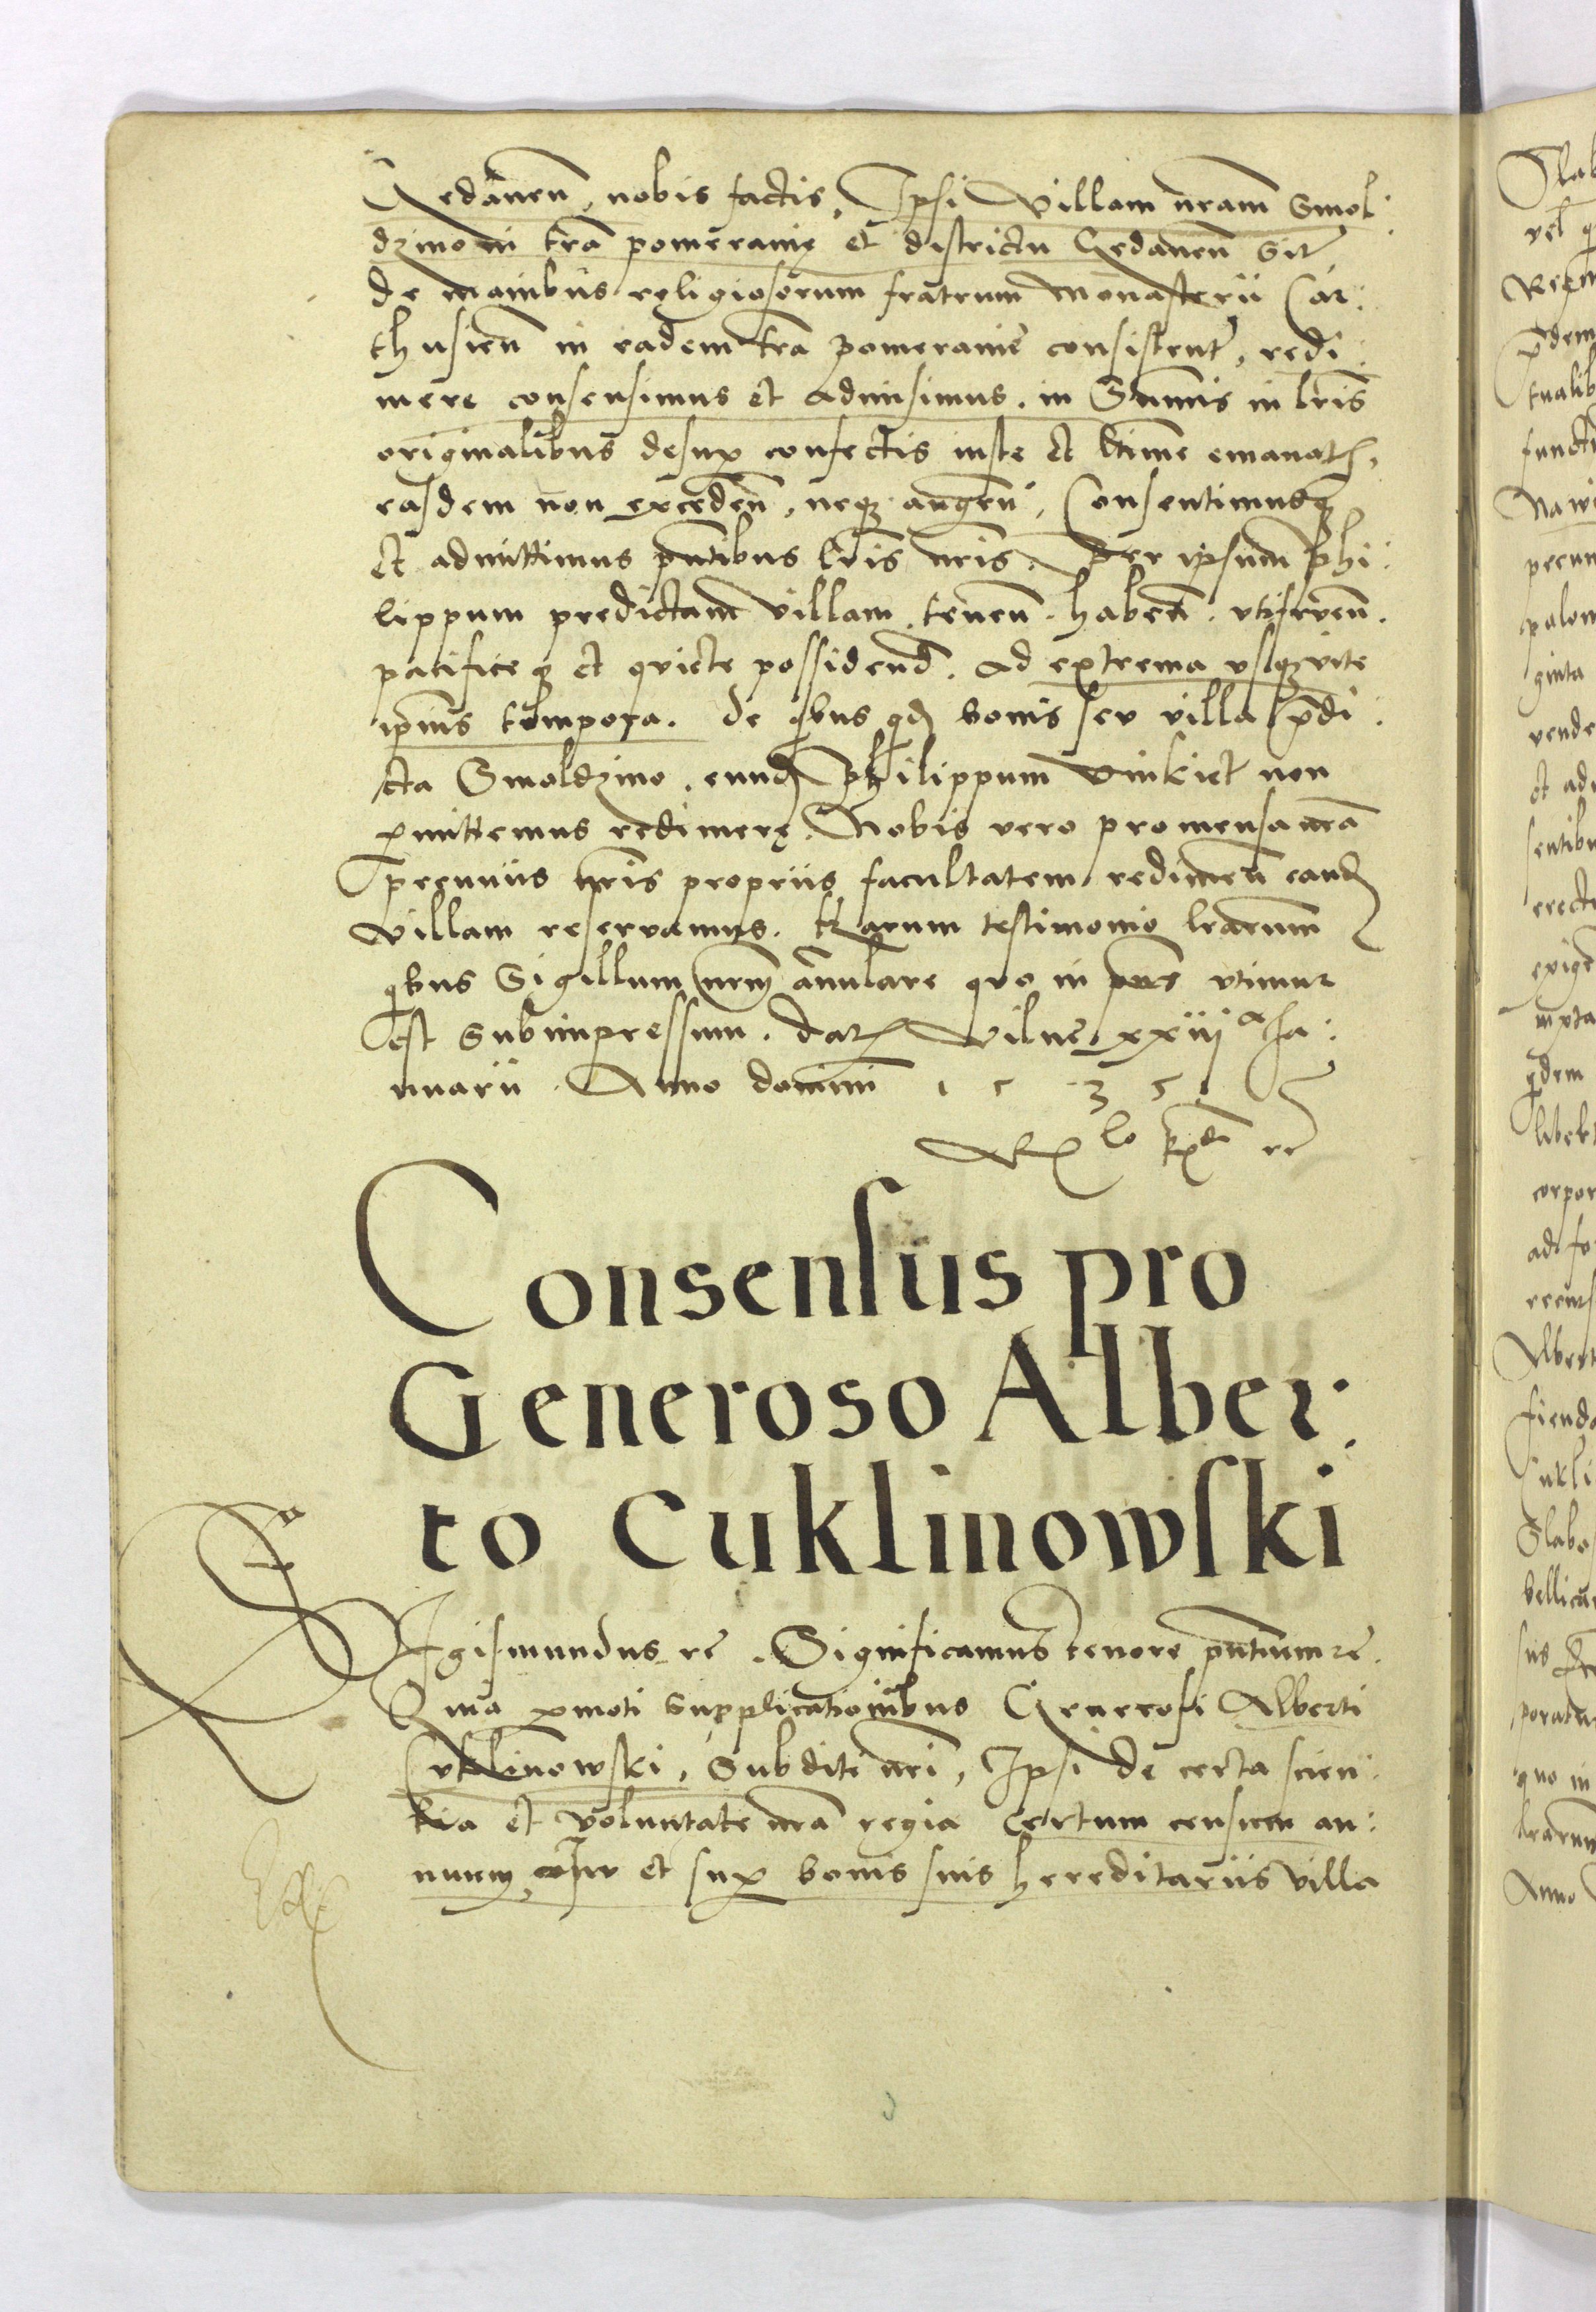 Gedanen, nobis factis, Ipsi Villam nram Smol
dzino in tra pomeranie et districtu Gedanen Sit
de manibus religiosorum fratrum Monasterii Car:
thusien in eadem tra pomeranie consistent, redi
mere consensimus et admisimus. in Summis in lris
originalibus desup confectis iuste et ltime emanat,
easdem non exceden, neq augen, Consentimusq
et admittimus pntibus lris nris. Per ipsum Phi:
lippum predictam Villam tenen. haben. utifruen.
pacifice q et quiete possidend. Ad extrema usq vite
ipius tempora. De qbus qd bonis seu villa pdi
cta Smoldzino, eund Philippum Vinkiet non
pmittemus redimere. Nobis vero pro mensa nra
pecuniis nris propriis facultatem redimen eand
Villam reservamus. Harum testimonio lrarum
qbus Sigillum nrm annulare quo in pns utimur
est Subimpressum. Dat Wilne xxiij a Ja:
nuarii. Anno domini 1535
Consensus pro
Generoso Alber:
to Cuklinowski
Igismundus re. Significamus tenore pntium re.
Quia pmoti Supplicationibus Generosi Alberti
Cuklinowski, Subditi nri, Ipsi de certa scien:
tia et voluntate nra regia certum censum an:
nuum et sup bonis suis hereditariis Villa